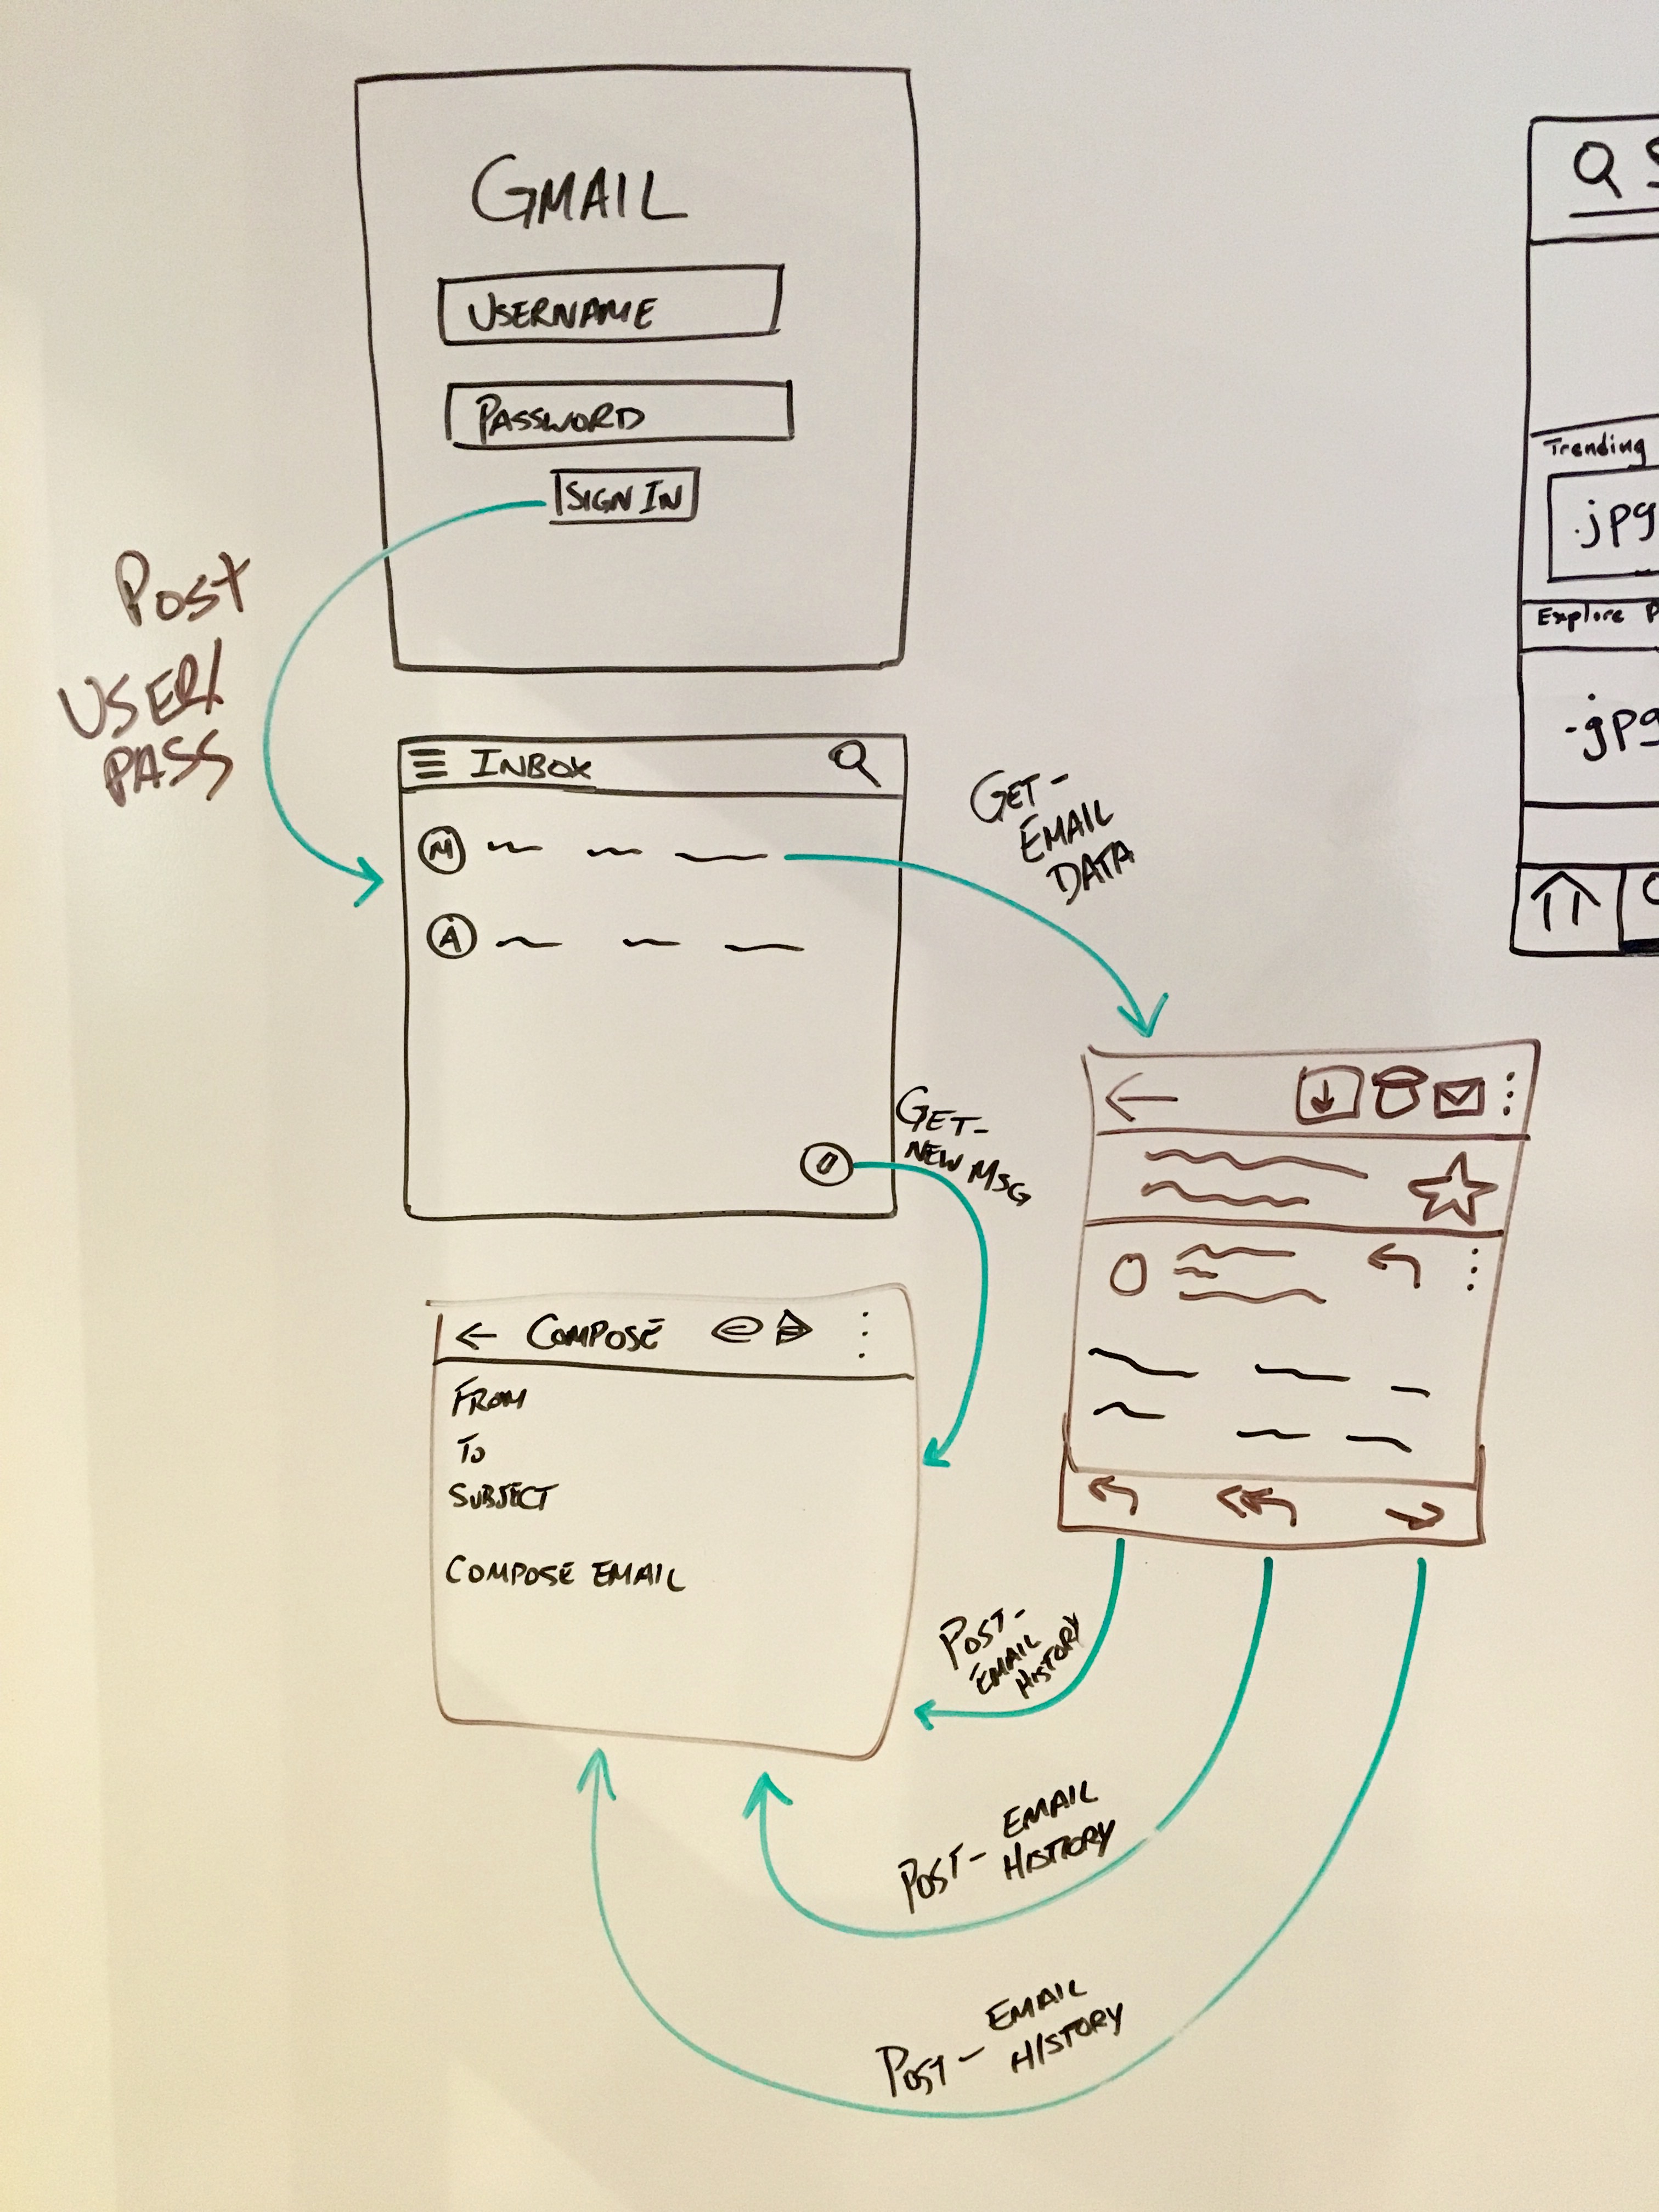 GMAIL
USERNAME
PASSWORD
SIGN IN
POST
USER/
PASS
INBOX
M
A
GET-
EMAIL
DATA
GET-
NEW MSG
COMPOSE
FROM
TO
SUBJECT
COMPOSE EMAIL
POST-
EMAIL
HISTORY
POST- EMAIL
HISTORY
POST- EMAIL
HISTORY
Trending
.jpg
Explore
.jpg